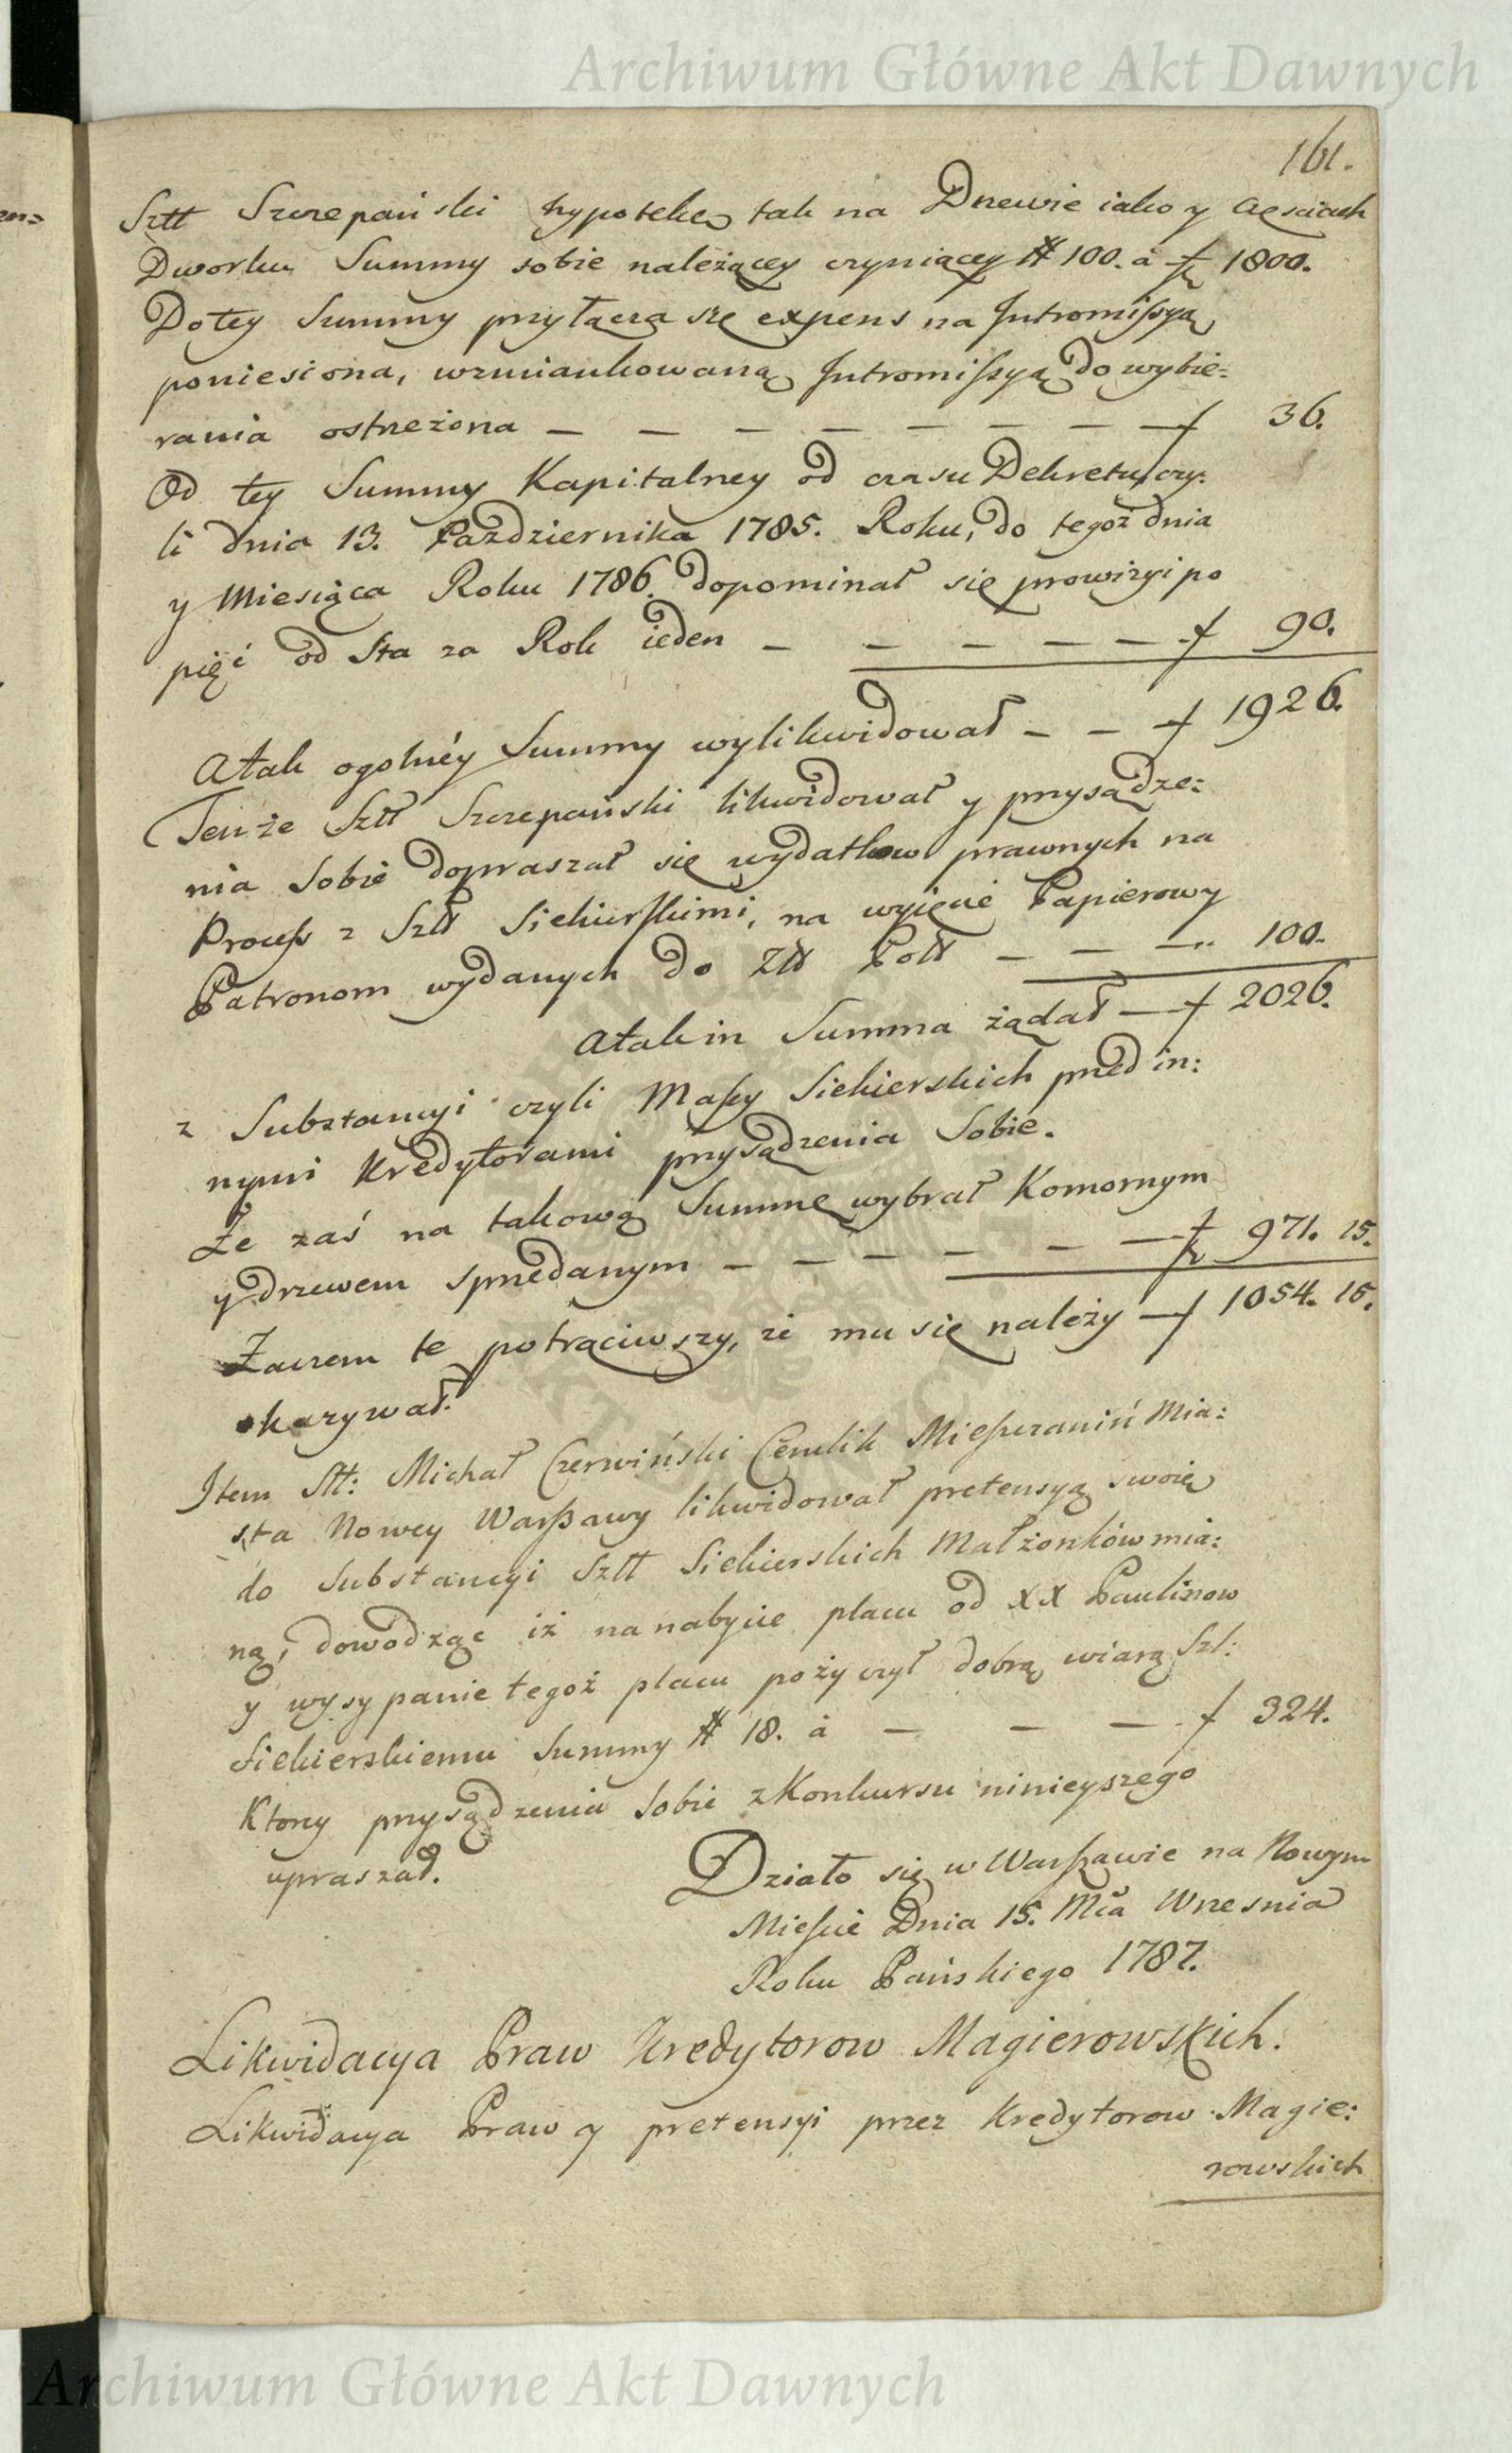 Archiwum Główne Akt Dawnych
161.
Sztt Szczepański hypotekę tak na Drzewie iako y Częściach
Dworku Summy sobie należącey czyniącey # 100. à f 1800.
Do tey Summy przyłącza się expens na Intromissyą
poniesiona, wzmiankowaną Intromissyą do wybie:
rania ostrzeżona — — — — — — — — f 36.
Od tey Summy Kapitalney od czasu Dekretu czy:
li dnia 13. Października 1785. Roku, do tegoż dnia
y Miesiąca Roku 1786. dopominał się prowizyi po
pięć od Sta za Rok ieden — — — — — f 90.
Atak ogolnéy Summy wylikwidował — — f 1926.
Tenże Sztt Szczepański likwidował y przysądze:
nia Sobie dopraszał się wydatkow prawnych na
Process z Sztt Siekierskimi, na wyięcie Papierowy
Patronom wydanych do Złł Poll — — — .. 100.
Atak in Summa żądał — f 2026.
z Substancyi czyli Massy Siekierskich przed in:
nymi Kredytorami przysądzenia Sobie.
Że zaś na takową Summę wybrał Komornym
y drzewem sprzedanym — — — — — — f 971. 15.
Zaczem te potrąciwszy, że mu się należy — f 1054. 15.
okazywał.
Item Stt: Michał Czerwiński Cerulik Mieszczaniń Mia:
sta Nowey Warszawy likwidował pretensyą swoię
do Substancyi Sztt Siekierskich Małżonków mia:
ną, dowodząc iż na nabycie placu od XX Paulinow
y wysypanie tegoż placu pożyczył dobrą wiarą Szl:
Siekierskiemu Summy # 18. à — — — f 324.
Ktorey przysądzenia Sobie z Konkursu ninieyszego
upraszał.
Działo się w Warszawie na Nowym
Mieście Dnia 15. Mca Wrzesnia
Roku Pańskiego 1787.
Likwidacya Praw Kredytorow Magierowskich.
Likwidacya Praw y pretensyi przez Kredytorow Magie:
rowskich
Archiwum Główne Akt Dawnych